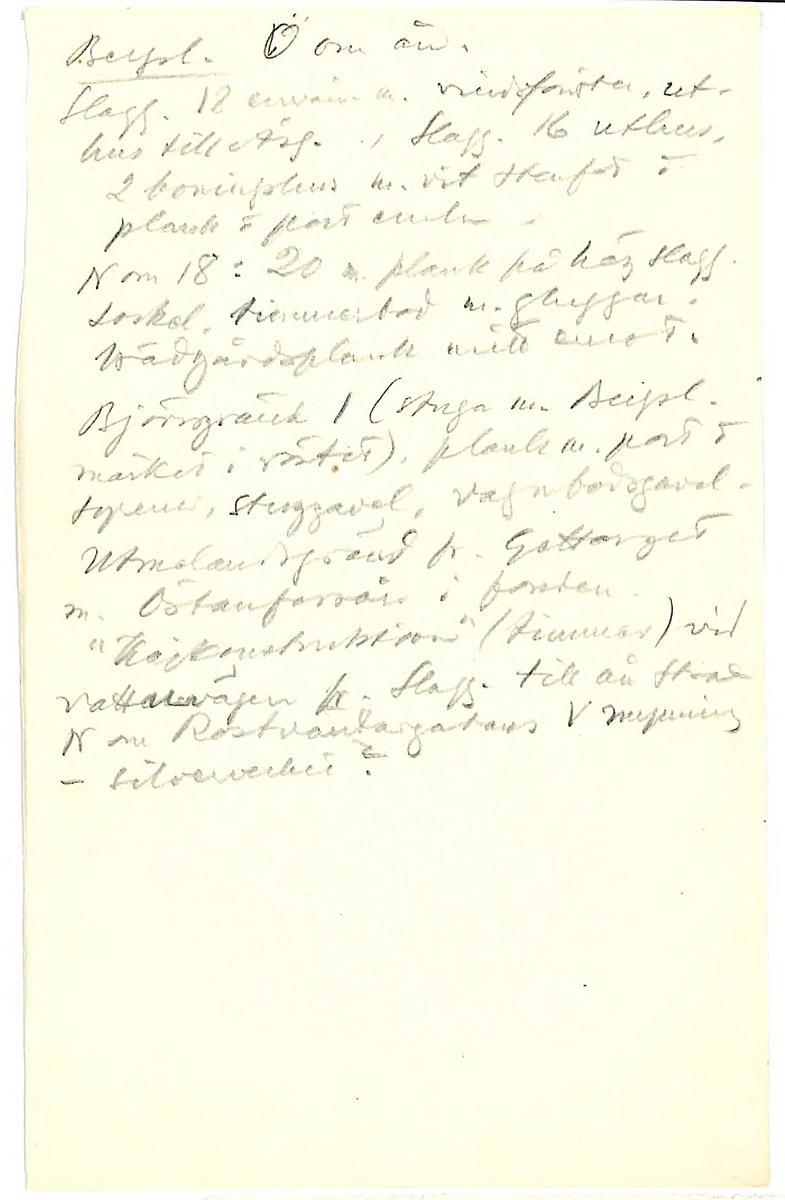 Bergsl. Ö om ån.
Slagg. 12 envån. m. vindsfönster, ut-
hus till Åsg. , Slagg. 16 uthus,
2 boningshus m. vit stenfot o
plank o port
N om 18: 20 m. plank på hög slagg.
sockel, timmerbod m. gluggar.
Trädgårdsplank mitt emot.
Björnsgränd 1 (stuga m. Bergsl.
märket i röstet), plank m. port o
stuggavel, vagnbodsgavel.
Utmelandsgränd fr. Gattorget
m. Östanforsån i fonden.
"Kojkonstruktion" (timmer) vid
vattenvägen fr. Slagg. till ån strax
N om Rostvändargatans V mynning
– silververket?